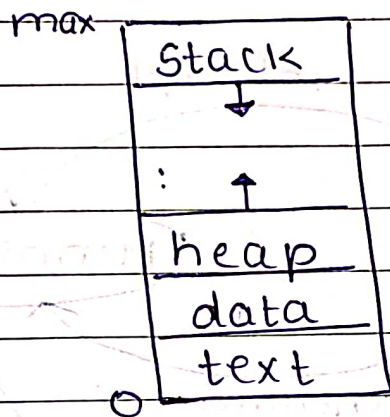 max
stack
:
heap
data
text
0